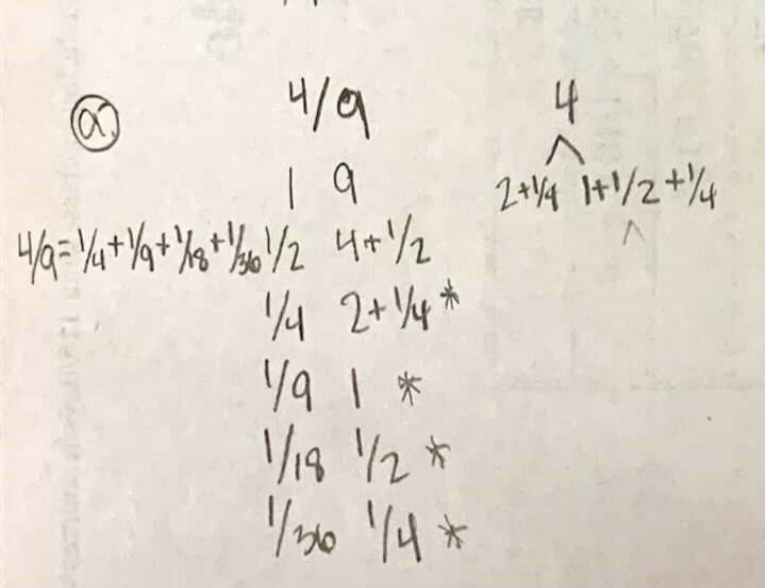 a.
4/9 4
1 9 2+1/4 1+1/2+1/4
4/9=1/4+1/9+1/18+1/36 1/2 4+1/2
1/4 2+1/4*
1/9 1 *
1/18 1/2 *
1/36 1/4 *